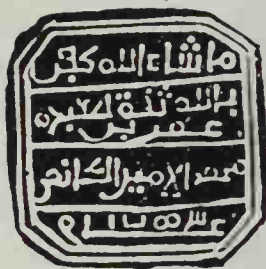 ما شاء الله
بالله ثقة عبده
عمر بن
محمد الامين الكانمي